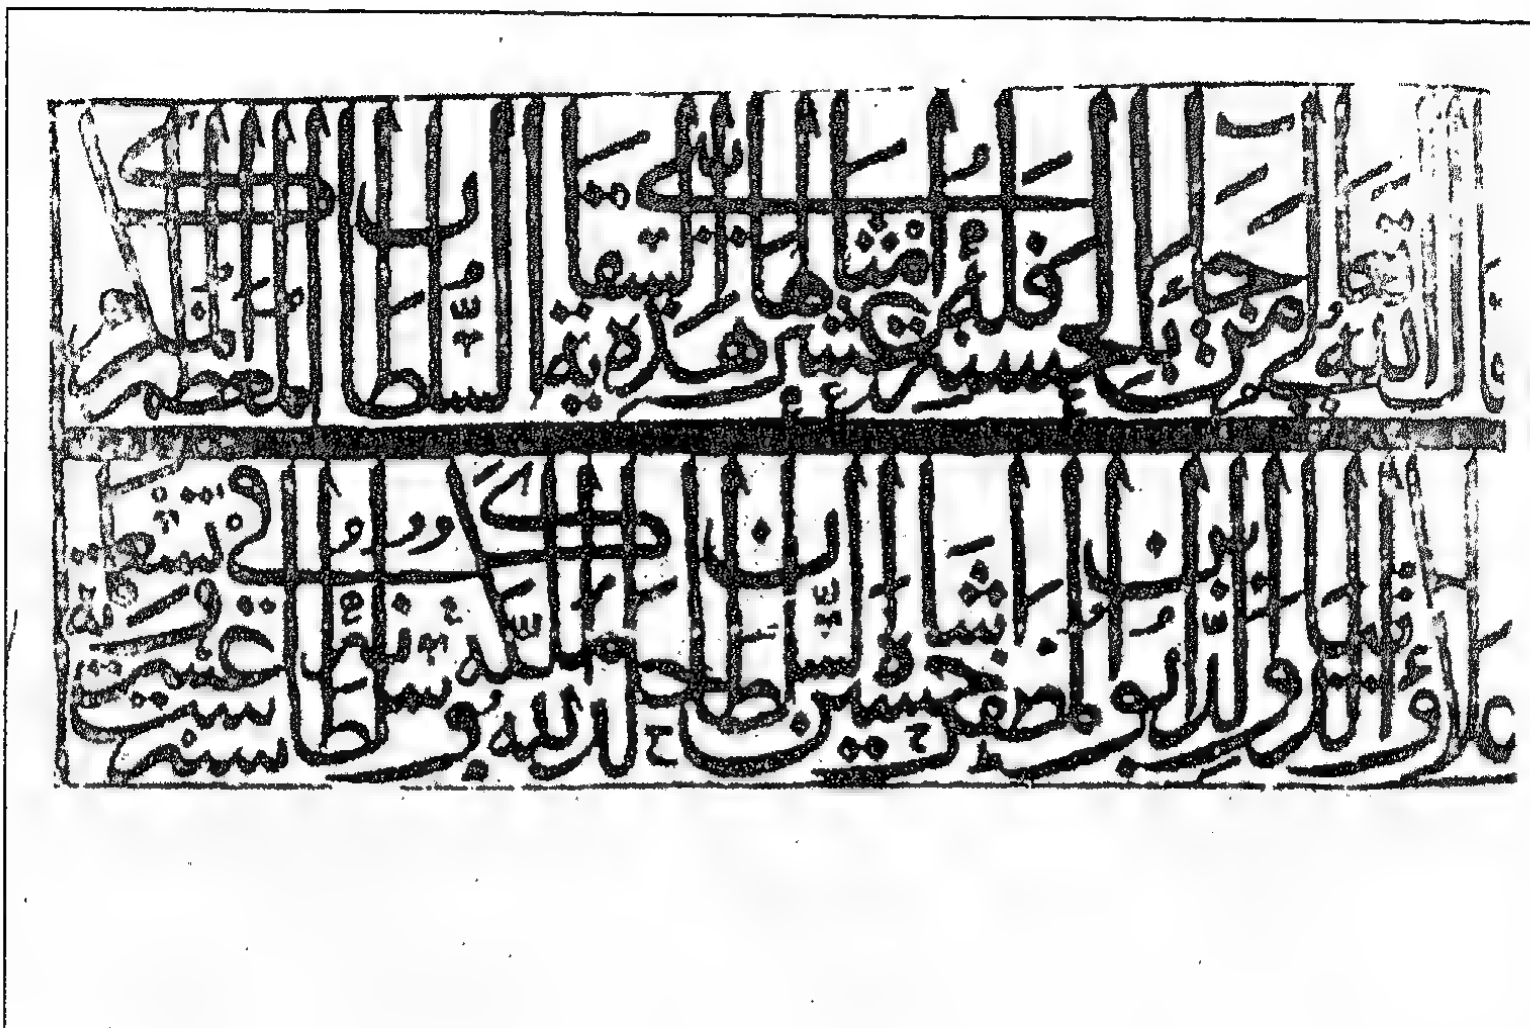 قال الله تعالى من جاء بالحسنة فله عشر أمثالها هذه السقاية السلطان المعظم المكرم
علاء الدنيا والدين ابو المظفر حسين شاه السلطان خلد الله ملكه وسلطانه في سنة عشر وتسعمائة